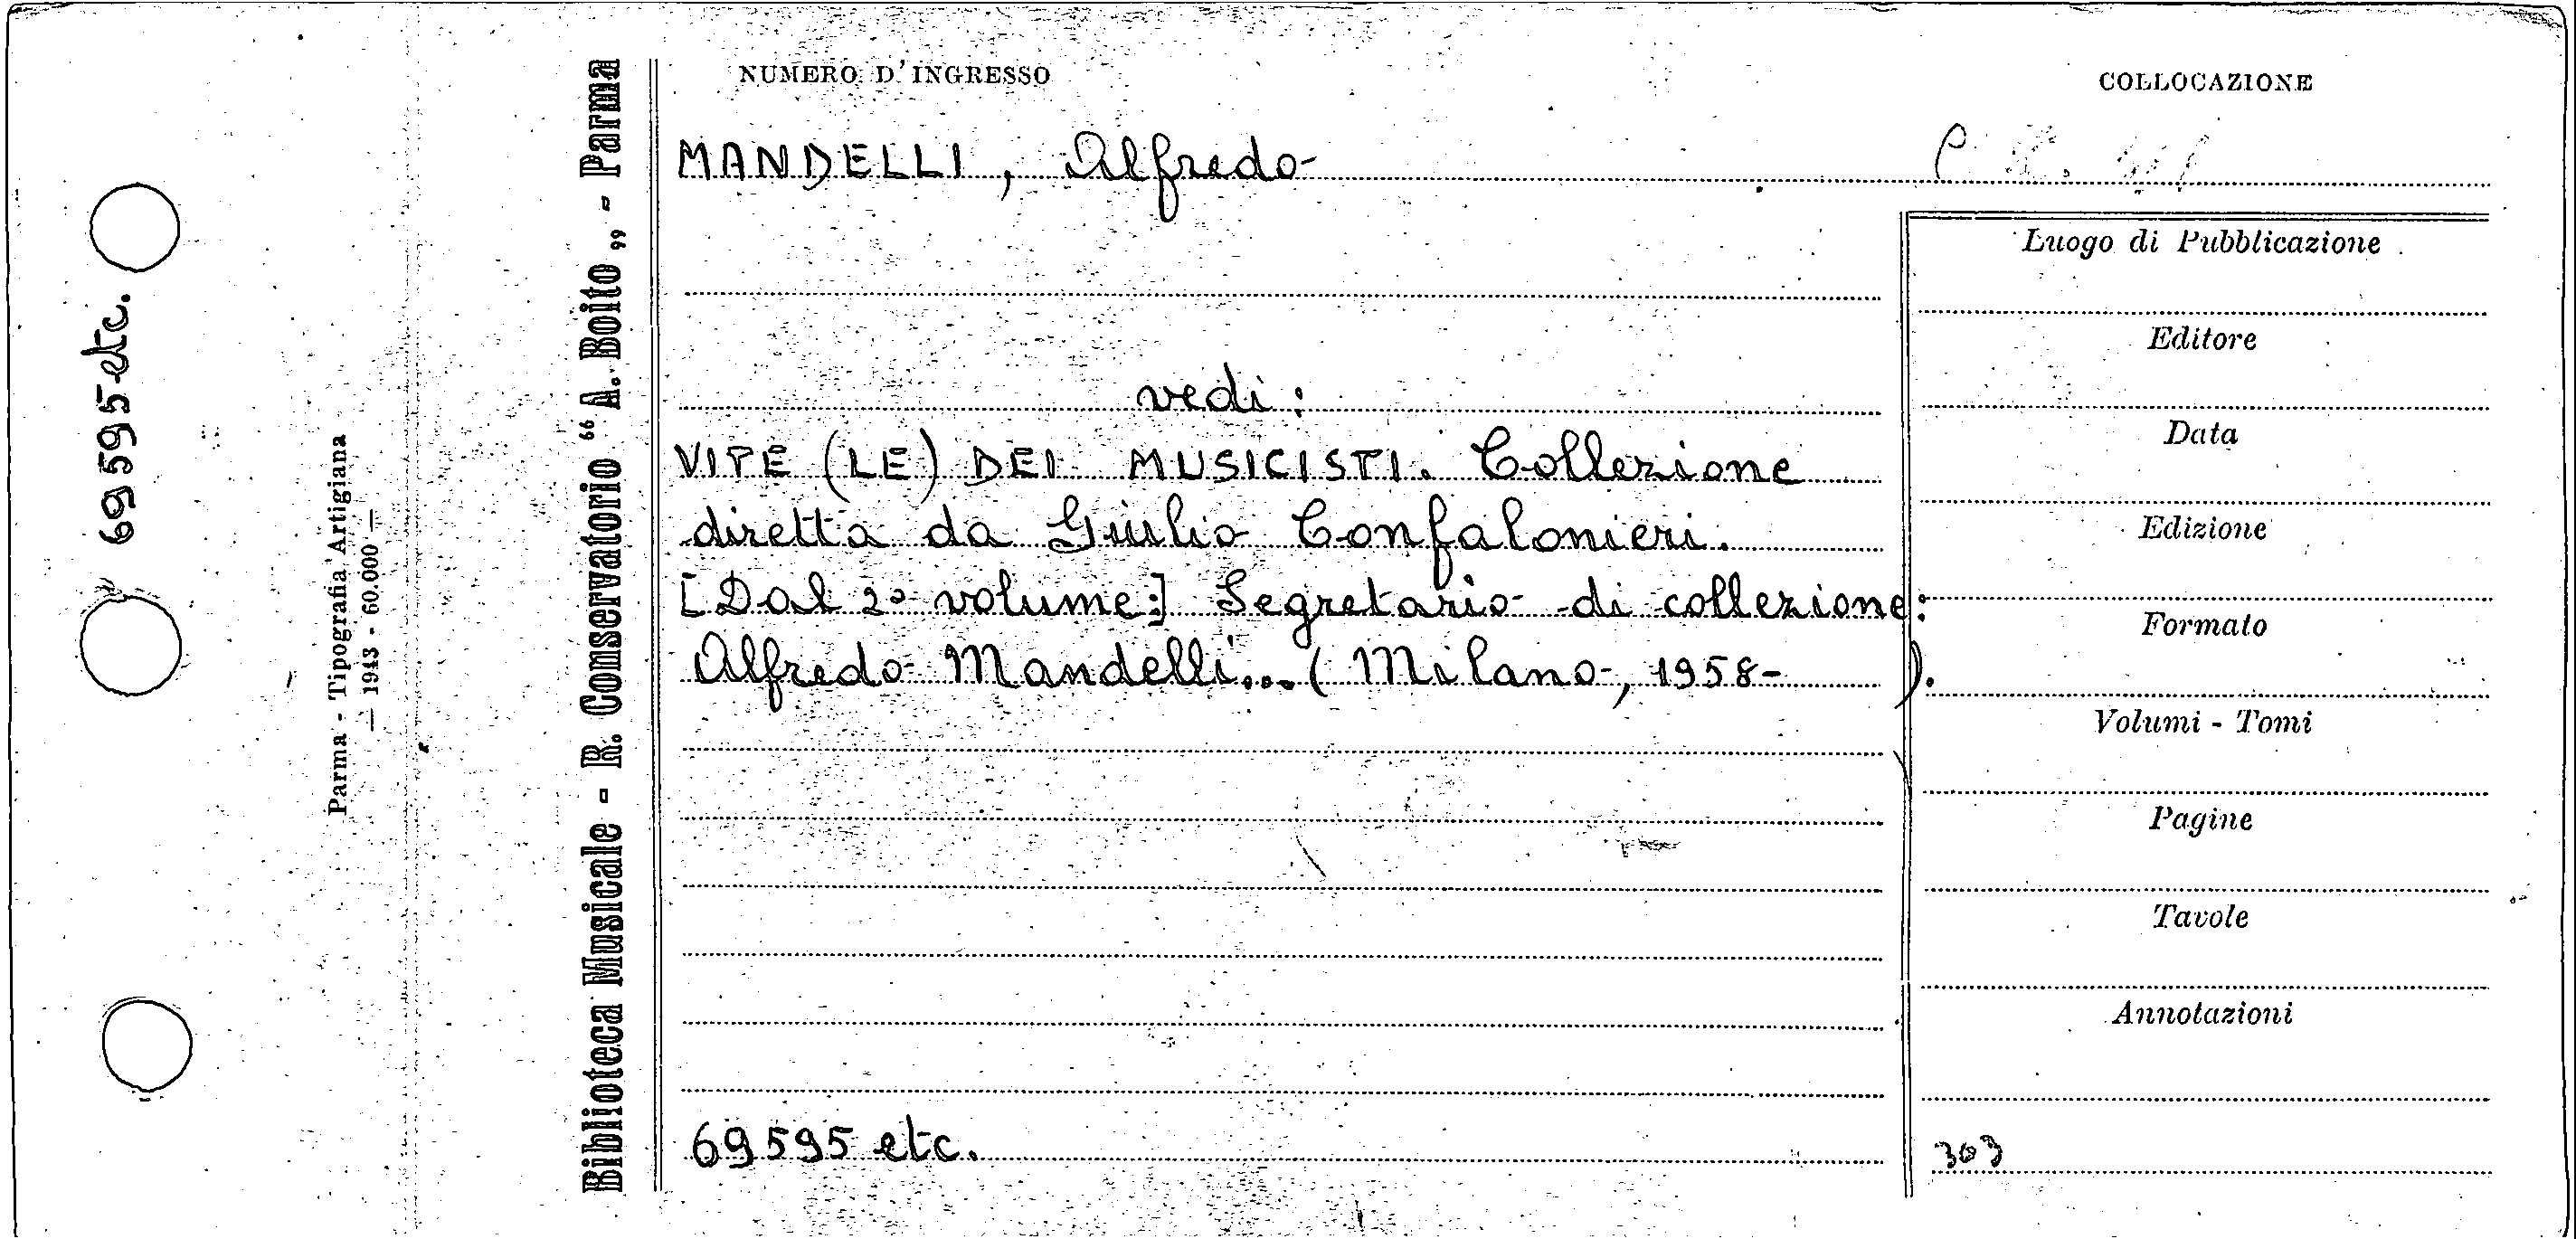 NUMERO D'INGRESSO
COLLOCAZIONE
MANDELLI, Alfredo
vedi:
VITE (LE) DEI MUSICISTI. Collezione
diretta da Giulio Confalonieri.
[Dal 2° volume:] Segretario di collezione:
Alfredo Mandelli...( Milano, 1958- ).
69595 etc.
Luogo di Pubblicazione
Editore
Data
Edizione
Formato
Volumi - Tomi
Pagine
Tavole
Annotazioni
303
69595 etc.
Parma - Tipografia Artigiana
— 1943 - 60.000 —
Biblioteca Musicale - R. Conservatorio “ A. Boito „ - Parma